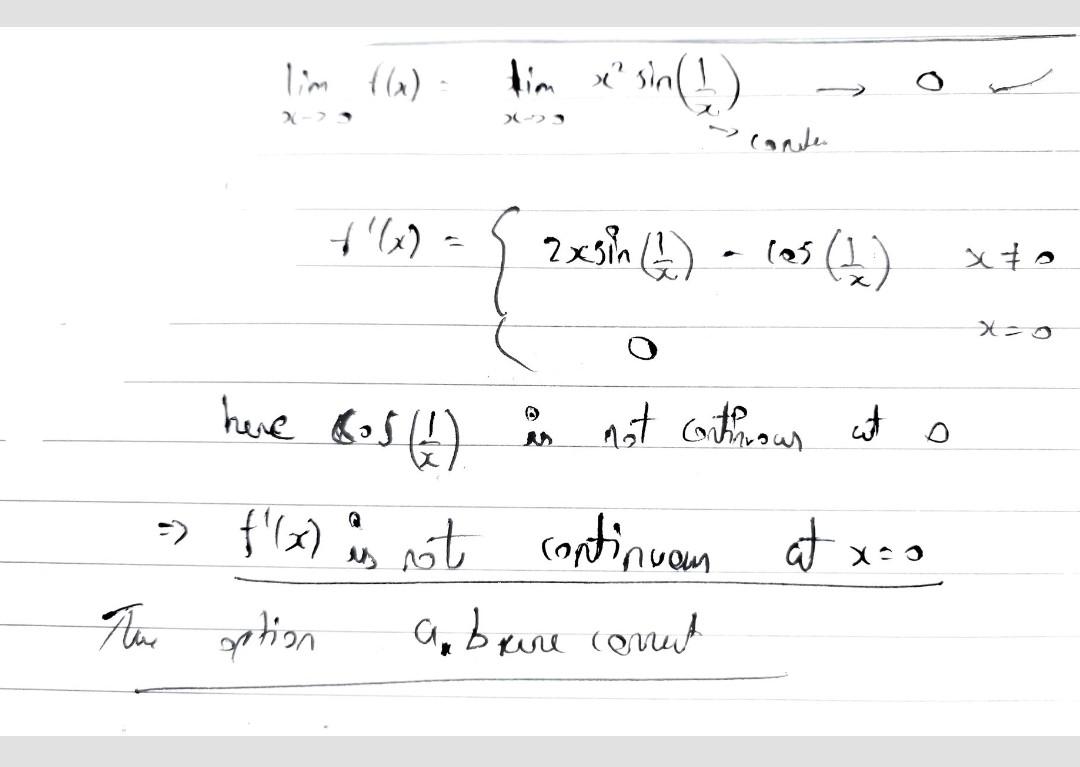 lim f(x) = lim x² sin(1/x) → 0 ✓
x->0 x->0
f'(x) = { 2x sin(1/x) - cos(1/x) x ≠ 0
0 x = 0
here cos(1/x) is not continuous at 0
=> f'(x) is not continuous at x=0
option a, b are correct